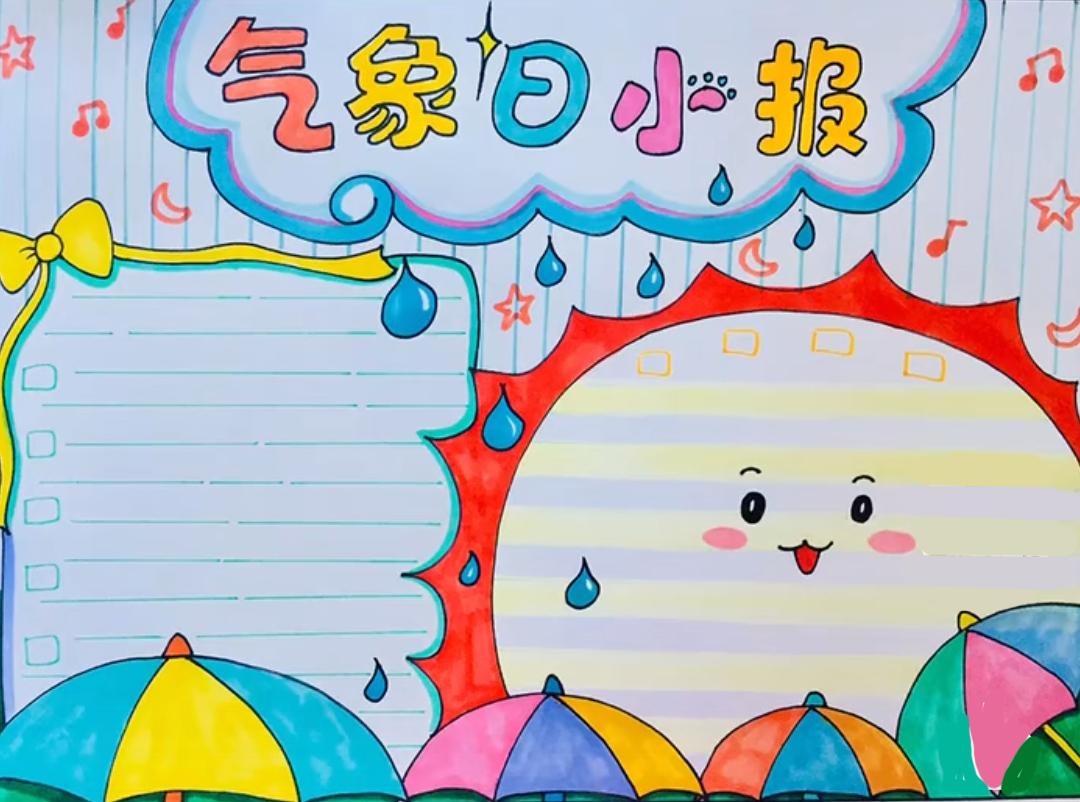 气象日小报